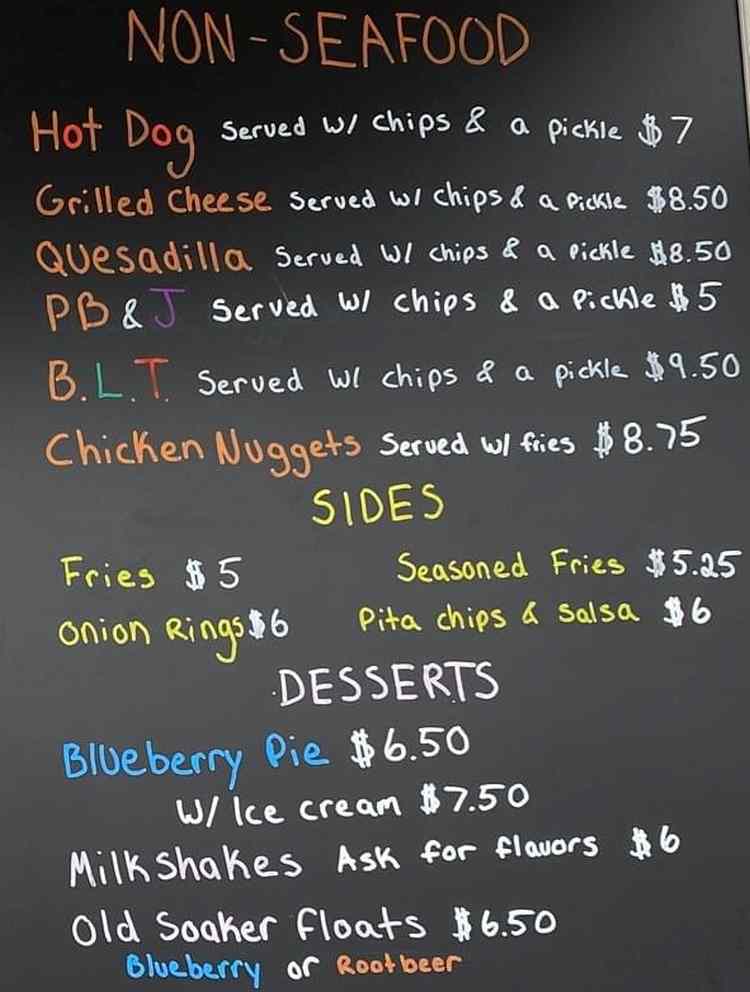 NON-SEAFOOD
Hot Dog Served w/ chips & a pickle $7
Grilled Cheese Served w/ chips & a Pickle $8.50
Quesadilla Served w/ chips & a Pickle $8.50
PB & J Served w/ chips & a Pickle $5
B.L.T. Served w/ chips & a pickle $9.50
Chicken Nuggets Served w/ fries $8.75
SIDES
Fries $5 Seasoned Fries $5.25
Onion Rings $6 Pita chips & Salsa $6
DESSERTS
Blueberry Pie $6.50
w/ Ice cream $7.50
Milkshakes Ask for flavors $6
Old Soaker Floats $6.50
Blueberry or Rootbeer